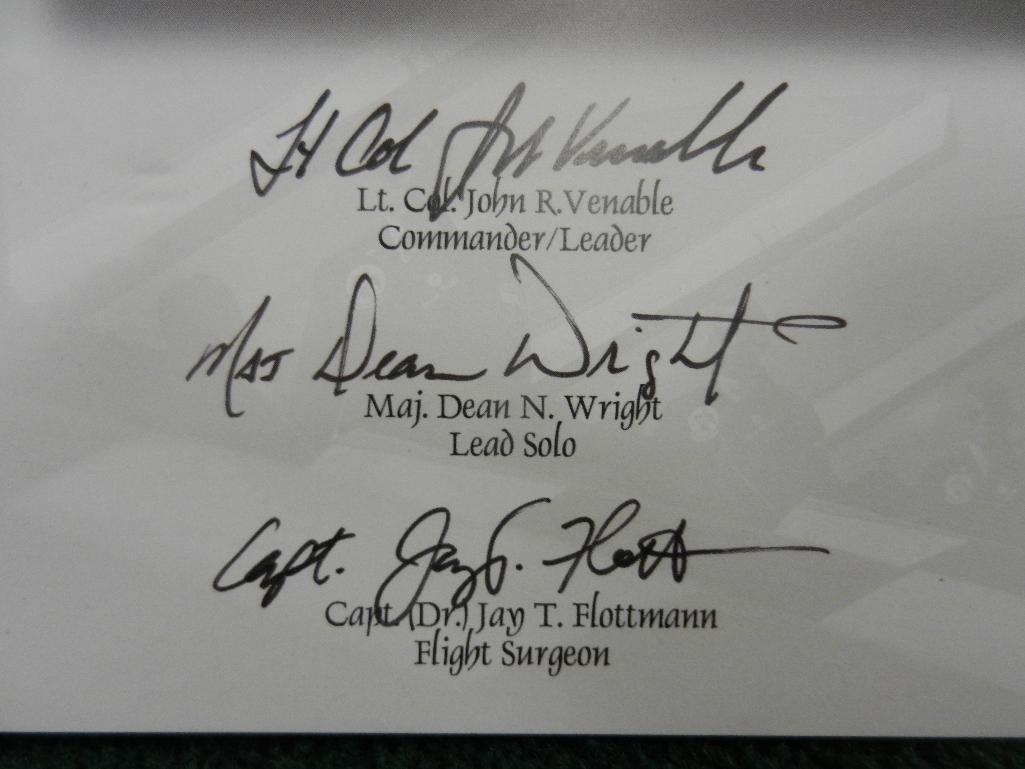 Lt Col John Venable
Lt. Col. John R.Venable
Commander/Leader
Maj Dean Wright
Maj. Dean N. Wright
Lead Solo
Capt. Jay T. Flott
Capt. (Dr.) Jay T. Flottmann
Flight Surgeon